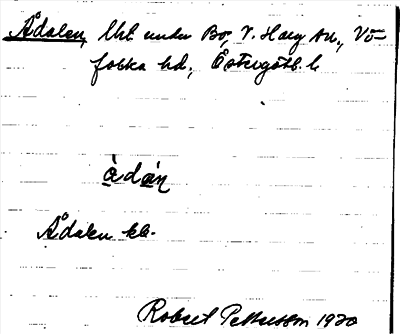 Ådalen, lht under Bo, V. Harg sn., Vi-
folka hd., Östergötl. l.
àdán
Ådalen kb.
Robert Pettersson 1920